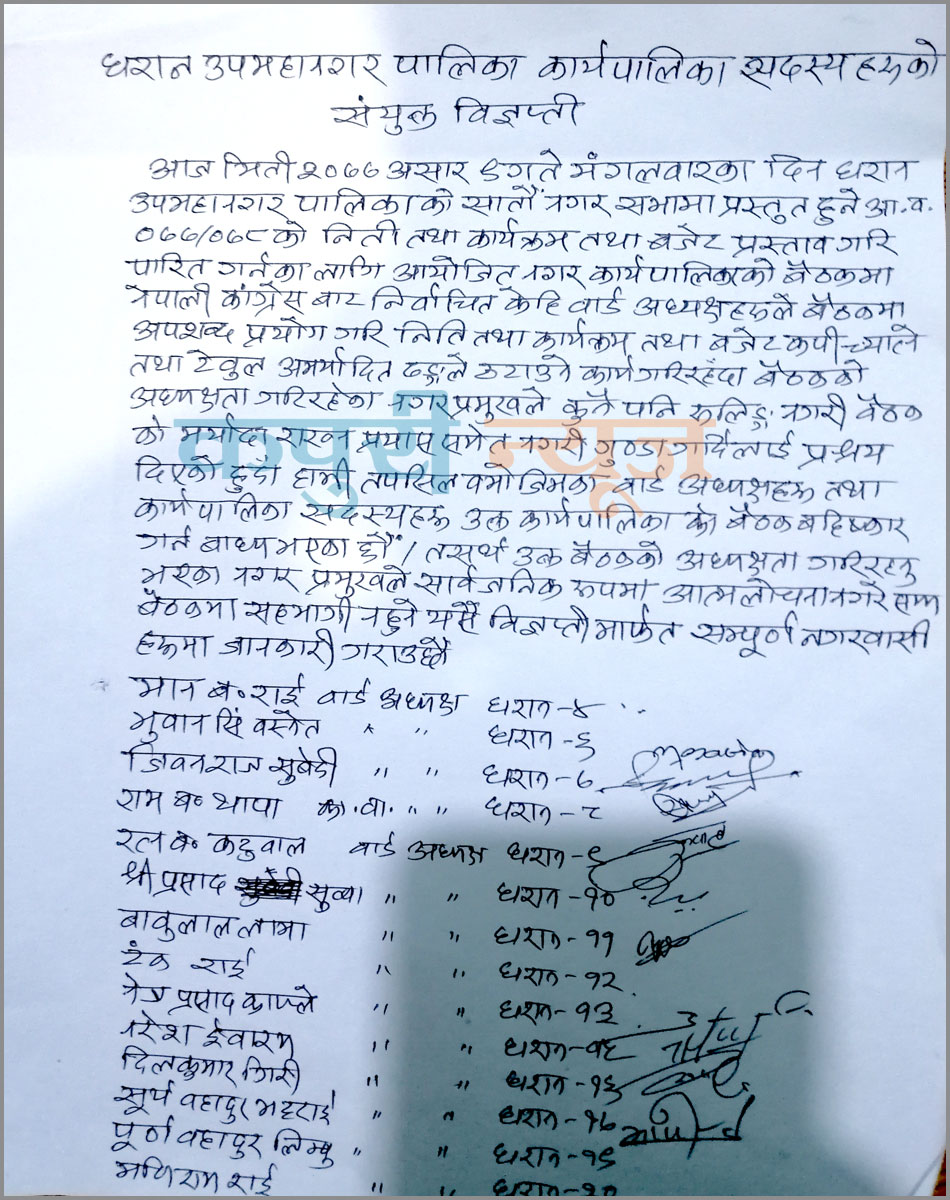 धरान उपमहानगर पालिका कार्यपालिका सदस्य हरुको
संयुक्त विज्ञप्ती
आज मिती २०७७ असार ९ गते मंगलवारका दिन धरान
उपमहानगर पालिका को सातौं नगर सभामा प्रस्तुत हुने आ.व.
०७७/०७८ को निती तथा कार्यक्रम तथा बजेट प्रस्ताव गरि
पारित गर्नका लागि आयोजित नगर कार्यपालिकाको बैठकमा
नेपाली कांग्रेस बाट निर्वाचित केहि वार्ड अध्यक्षहरुले बैठकमा
अपशब्द प्रयोग गरि निति तथा कार्यक्रम तथा बजेट कपी च्यात्ने
तथा टेवुल अमर्यादित ढङ्गले ठटाउने कार्य गरिरहँदा बैठकको
अध्यक्षता गरिरहेका नगर प्रमुखले कुनै पनि रुलिङ्ग नगरी बैठक
को मर्यादा राख्न प्रयास समेत नगरी गुण्डा गर्दिलाई प्रश्रय
दिएको हुदाँ हामी तपसिल बमोजिमका वार्ड अध्यक्षहरु तथा
कार्यपालिका सदस्यहरु उक्त कार्यपालिका को बैठक बहिष्कार
गर्न बाध्य भएका छौं। तसर्थ उक्त बैठकको अध्यक्षता गरिरहनु
भएका नगर प्रमुखले सार्वजनिक रुपमा आत्मलोचना नगरे सम्म
बैठकमा सहभागी नहुने यसै विज्ञप्ती मार्फत सम्पूर्ण नगरवासी
हरुमा जानकारी गराउछौं
कपुरी न्यूज
मान ब० राई वार्ड अध्यक्ष धरान-४
भुवान सिं वस्नेत " " धरान-६
जिवनराज सुबेदी " " धरान-७
राम ब० थापा का.वा. " " धरान-८
रत्न ब० कटुवाल वार्ड अध्यक्ष धरान-९
श्री प्रसाद सुब्बा " " धरान-१०
बाकुलाल लामा " " धरान-११
टंक राई " " धरान-१२
प्रसाद काफ्ले " " धरान-१३
नरेश ईवारम " " धरान-
दिलकुमार गिरी " " धरान-१६
सूर्य वहादुर भट्टराई " " धरान-१७
पूर्ण वहादुर लिम्बु " " धरान-१९
मणिराम राई " " धरान-२०